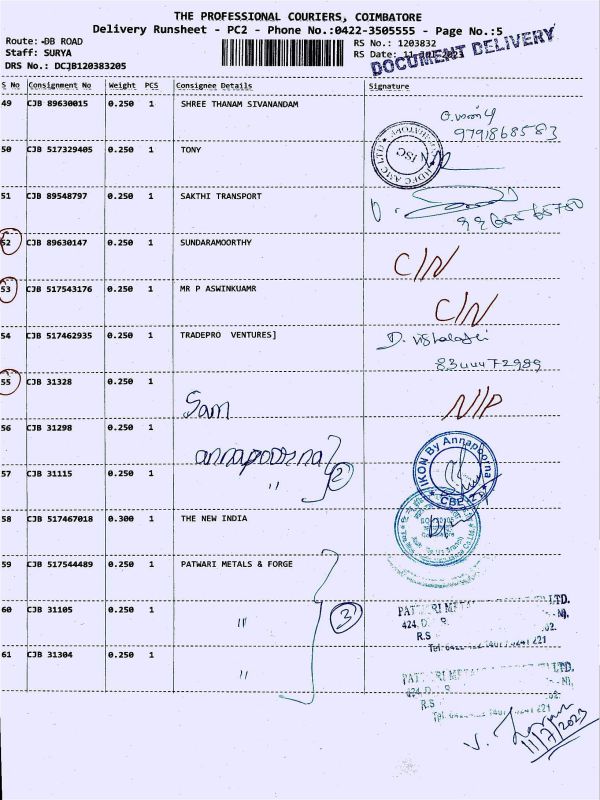 THE PROFESSIONAL COURIERS, COIMBATORE
Delivery Runsheet - PC2 - Phone No.:0422-3505555 - Page No.:5
Route: DB ROAD
RS No.: 1203832
Staff: SURYA
RS Date:
DOCUMENT DELIVERY
DRS No.: DCJB120383205
S No Consignment No Weight PCS Consignee Details Signature
49 CJB 89630015 0.250 1 SHREE THANAM SIVANANDAM
9791868583
50 CJB 517329405 0.250 1 TONY
51 CJB 89548797 0.250 1 SAKTHI TRANSPORT
52 CJB 89630147 0.250 1 SUNDARAMOORTHY
C/N
53 CJB 517543176 0.250 1 MR P ASWINKUAMR
C/N
54 CJB 517462935 0.250 1 TRADEPRO VENTURES]
55 CJB 31328 0.250 1
Sam
N/P
56 CJB 31298 0.250 1
annapoorna
IKON By Annapoorna
2
57 CJB 31115 0.250 1 "
58 CJB 517467018 0.300 1 THE NEW INDIA
59 CJB 517544489 0.250 1 PATWARI METALS & FORGE
60 CJB 31105 0.250 1 "
3
61 CJB 31304 0.250 1 "
11/7/2023